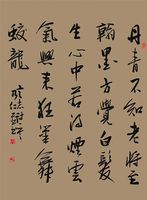 丹青不知老將至
翰墨方覺白髮
生心中若得煙雲
氣興來狂筆舞
蛟龍